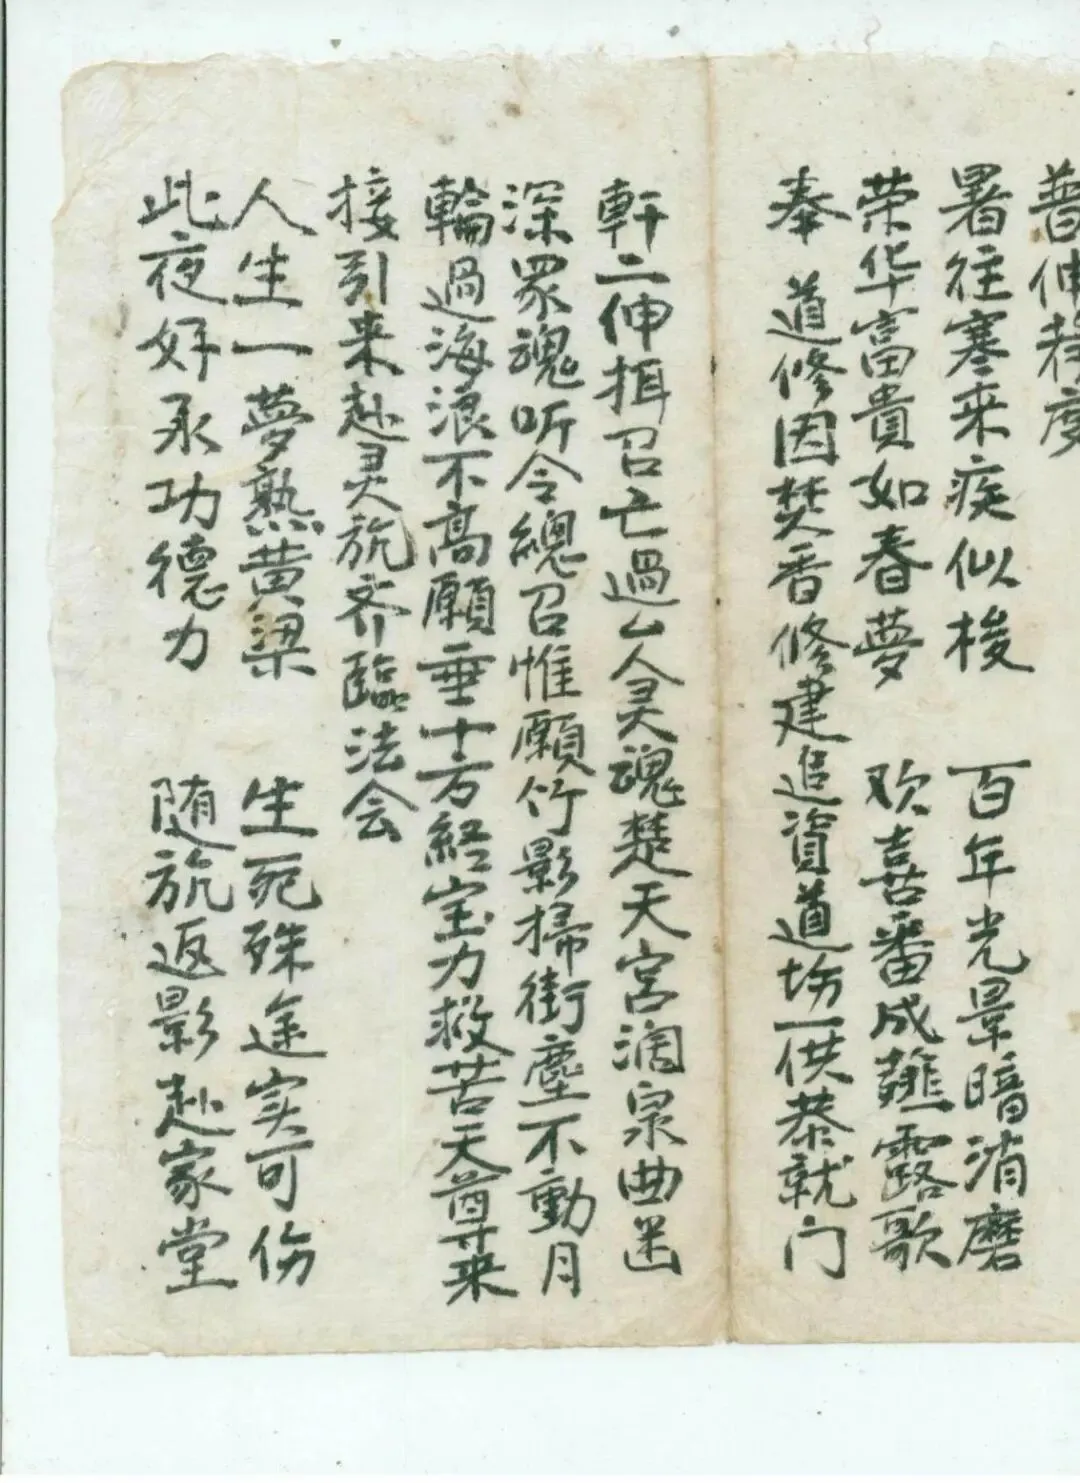 普伸
暑往寒来疾似梭 百年光景暗消磨
荣华富貴如春夢 欢喜番成薤露歌
奉 道修因焚香修建追資道场一供恭就门
軒二伸揖召亡過厶人灵魂楚天宫濶泉曲迷
深眾魂听令總召惟願竹影掃街塵不動月
輪過海浪不高願垂十方經宝力救苦天尊来
接引来赴灵旐齐臨法会
人生一夢熟黄梁 生死殊途实可伤
此夜好承功德力 随旐返影赴家堂